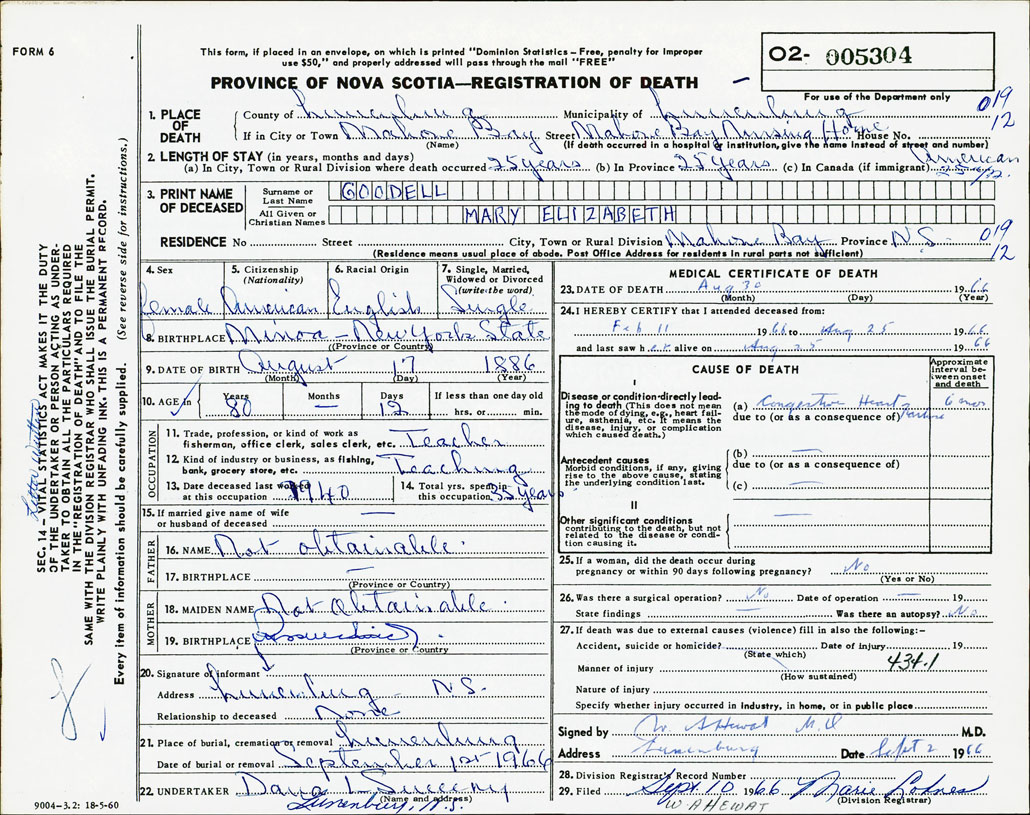 FORM 6
This form, if placed in an envelope, on which is printed "Dominion Statistics – Free, penalty for improper
use $50," and properly addressed will pass through the mail "FREE"
PROVINCE OF NOVA SCOTIA—REGISTRATION OF DEATH
02- 005304
For use of the Department only
019
12
1. PLACE OF DEATH
County of Lunenburg Municipality of Lunenburg
If in City or Town Mahone Bay Street Mahone Bay Nursing Home House No.
(Name) (If death occurred in a hospital or institution, give the name instead of street and number)
2. LENGTH OF STAY (in years, months and days) American
(a) In City, Town or Rural Division where death occurred 25 years (b) In Province 25 years (c) In Canada (if immigrant)
3. PRINT NAME OF DECEASED
Surname or Last Name GOODELL
All Given or Christian Names MARY ELIZABETH
RESIDENCE No Street City, Town or Rural Division Mahone Bay Province N.S. 019
12
(Residence means usual place of abode. Post Office Address for residents in rural parts not sufficient)
4. Sex Female
5. Citizenship (Nationality) American
6. Racial Origin English
7. Single, Married, Widowed or Divorced (write the word) Single
8. BIRTHPLACE Minoa - New York State
(Province or Country)
9. DATE OF BIRTH August 17 1886
(Month) (Day) (Year)
10. AGE in Years 80 Months — Days 12 If less than one day old
hrs. or min.
OCCUPATION
11. Trade, profession, or kind of work as
fisherman, office clerk, sales clerk, etc. Teacher
12. Kind of industry or business, as fishing,
bank, grocery store, etc. Teaching
13. Date deceased last worked at this occupation 1940
14. Total yrs. spent in this occupation 35 years
15. If married give name of wife
or husband of deceased —
FATHER
16. NAME Not obtainable.
17. BIRTHPLACE —
(Province or Country)
MOTHER
18. MAIDEN NAME Not obtainable.
19. BIRTHPLACE
(Province or Country
20. Signature of informant
Address Lunenburg N.S.
Relationship to deceased None
21. Place of burial, cremation or removal Lunenburg
Date of burial or removal September 1st 1966
22. UNDERTAKER Dana L. Sweeny
(Name and address)
Lunenburg, N.S.
9004-3.2: 18-5-60
MEDICAL CERTIFICATE OF DEATH
23. DATE OF DEATH Aug 30 1966
(Month) (Day) (Year)
24. I HEREBY CERTIFY that I attended deceased from:
Feb 11 1966 to Aug 25 1966
and last saw her alive on Aug 25 1966
CAUSE OF DEATH
Approximate interval between onset and death
I
Disease or condition directly leading to death (This does not mean the mode of dying, e.g., heart failure, asthenia, etc. It means the disease, injury, or complication which caused death.)
(a) Congestive Heart Failure 6 mos
due to (or as a consequence of)
Antecedent causes
Morbid conditions, if any, giving rise to the above cause, stating the underlying condition last.
(b) —
due to (or as a consequence of)
(c) —
II
Other significant conditions
contributing to the death, but not related to the disease or condition causing it.
25. If a woman, did the death occur during
pregnancy or within 90 days following pregnancy? No
(Yes or No)
26. Was there a surgical operation? No Date of operation — 19
State findings — Was there an autopsy? No
27. If death was due to external causes (violence) fill in also the following:–
Accident, suicide or homicide? Date of injury 19
(State which)
Manner of injury 434.1
(How sustained)
Nature of injury
Specify whether injury occurred in industry, in home, or in public place
Signed by W A Hewat M.D M.D.
Address Lunenburg Date Sept 2 1966
28. Division Registrar's Record Number
29. Filed Sept. 10 1966 Marie Lohnes
(Division Registrar)
W A HEWAT
SEC. 14 – VITAL STATISTICS ACT MAKES IT THE DUTY
OF THE UNDERTAKER OR PERSON ACTING AS UNDER-
TAKER TO OBTAIN ALL THE PARTICULARS REQUIRED
IN THE "REGISTRATION OF DEATH" AND TO FILE THE
SAME WITH THE DIVISION REGISTRAR WHO SHALL ISSUE THE BURIAL PERMIT.
WRITE PLAINLY WITH UNFADING INK. THIS IS A PERMANENT RECORD.
Every item of information should be carefully supplied. (See reverse side for instructions.)